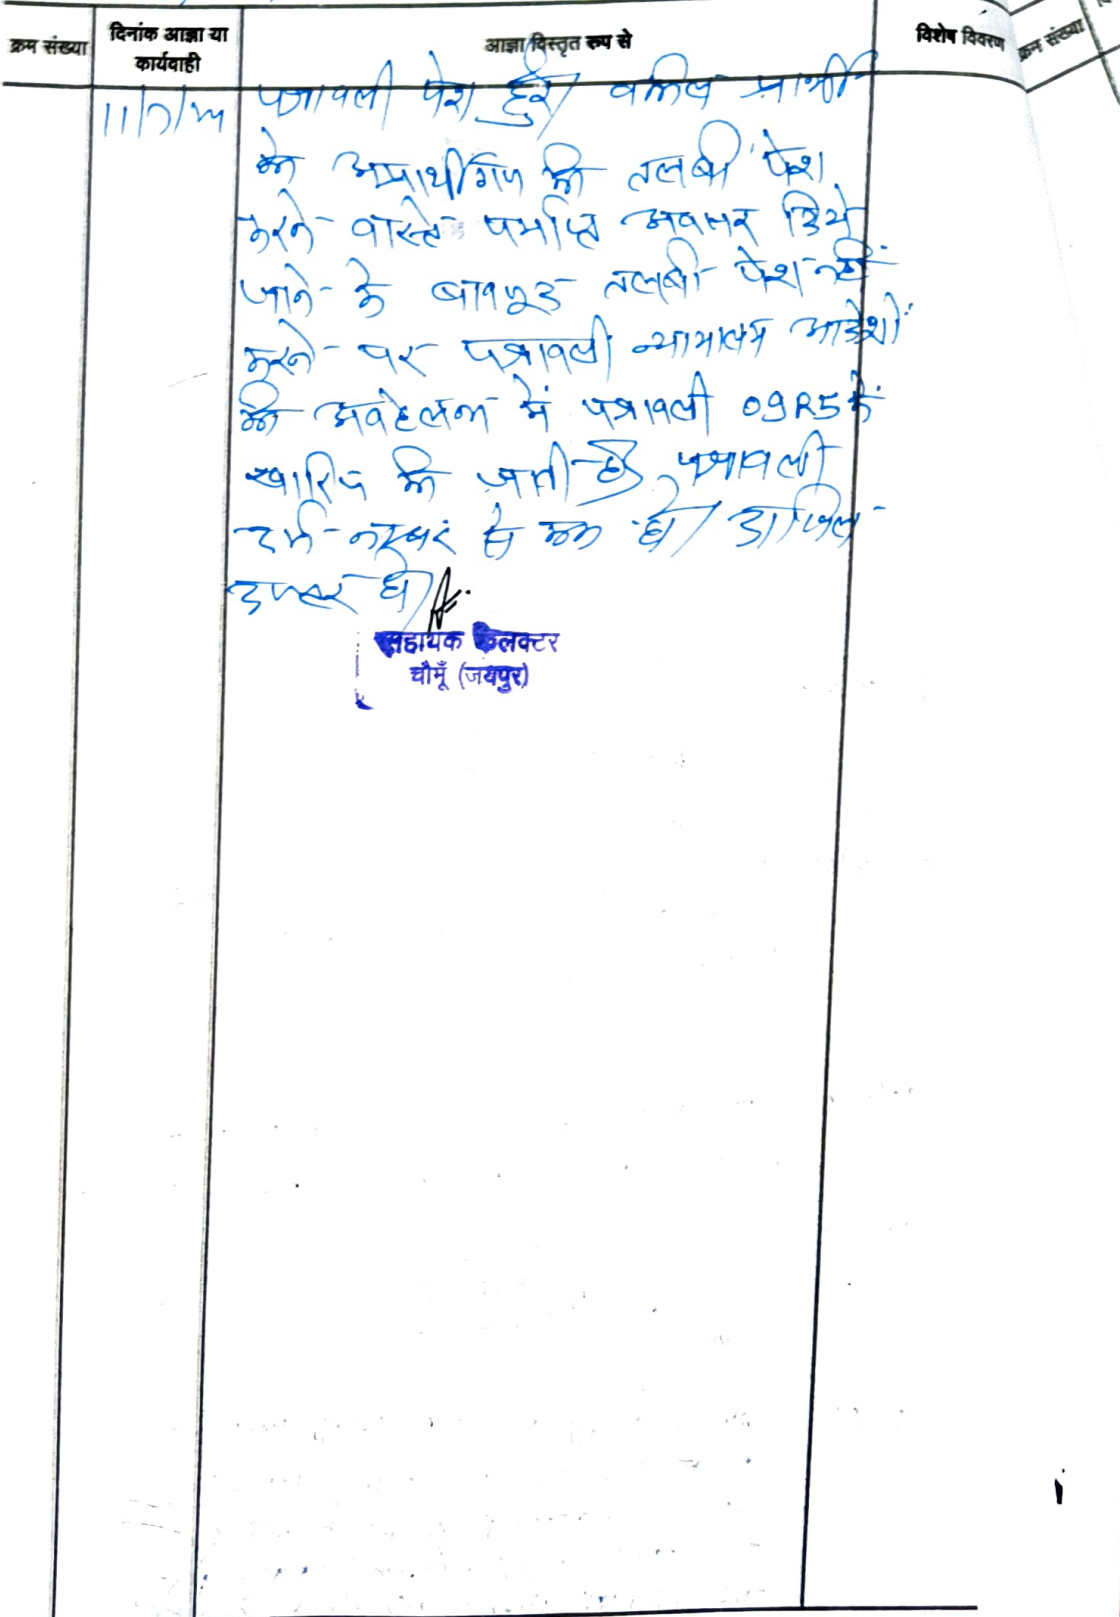 क्रम संख्या
दिनांक आज्ञा या
कार्यवाही
आज्ञा विस्तृत रूप से
विशेष विवरण
क्रम संख्या
पत्रावली पेश हुई। वकील प्रार्थी
को अप्रार्थीगण की तलबी पेश
करने वास्ते पर्याप्त अवसर दिये
जाने के बावजूद तलबी पेश नहीं
करने पर पत्रावली न्यायालय आदेशों
की अवहेलना में पत्रावली O9R5 में
खारिज की जाती है, पत्रावली
नम्बर से कम हो। दाखिल
दफ्तर हो।
सहायक कलक्टर
चौमूँ (जयपुर)